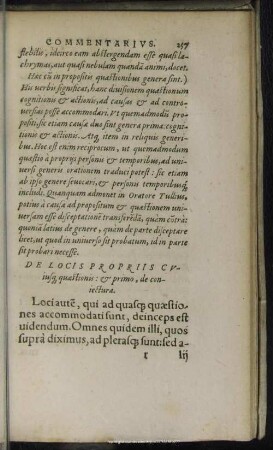 COMMENTARIVS. 257
flebilis, idcirco eam abstergendam esse quasi la-
chrymas, aut quasi nebulam quandã animi, docet.
Hæc cũ in propositis quæstionibus genera sint.)
His verbis significat, hanc diuisionem quæstionum
cognitionis & actionis, ad causas & ad contro-
uersias posse accommodari. Vt quemadmodũ pro-
positi, sic etiam causæ duo sint genera prima: cogni-
tionis & actionis. Atq; item in reliquis generi-
bus. Hoc est enim reciprocum, ut quemadmodum
quæstio à proprijs personis & temporibus, ad uni-
uersi generis orationem traduci potest: sic etiam
ab ipso genere seuocari, & personis temporibusq;
includi. Quanquam admonet in Oratore Tullius,
potius à causa ad propositum & quæstionem uni-
uersam esse disceptationẽ transferẽdã, quàm cõtrà:
quoniã latius de genere, quàm de parte disceptare
licet: ut quod in uniuerso sit probatum, id in parte
sit probari necesse.
DE LOCIS PROPRIIS CV-
iusq; quæstionis: & primo, de con-
iectura.
Loci autẽ, qui ad quasq; quæstio-
nes accommodati sunt, deinceps est
uidendum. Omnes quidem illi, quos
suprà diximus, ad plerasq; sunt: sed a-
r iij